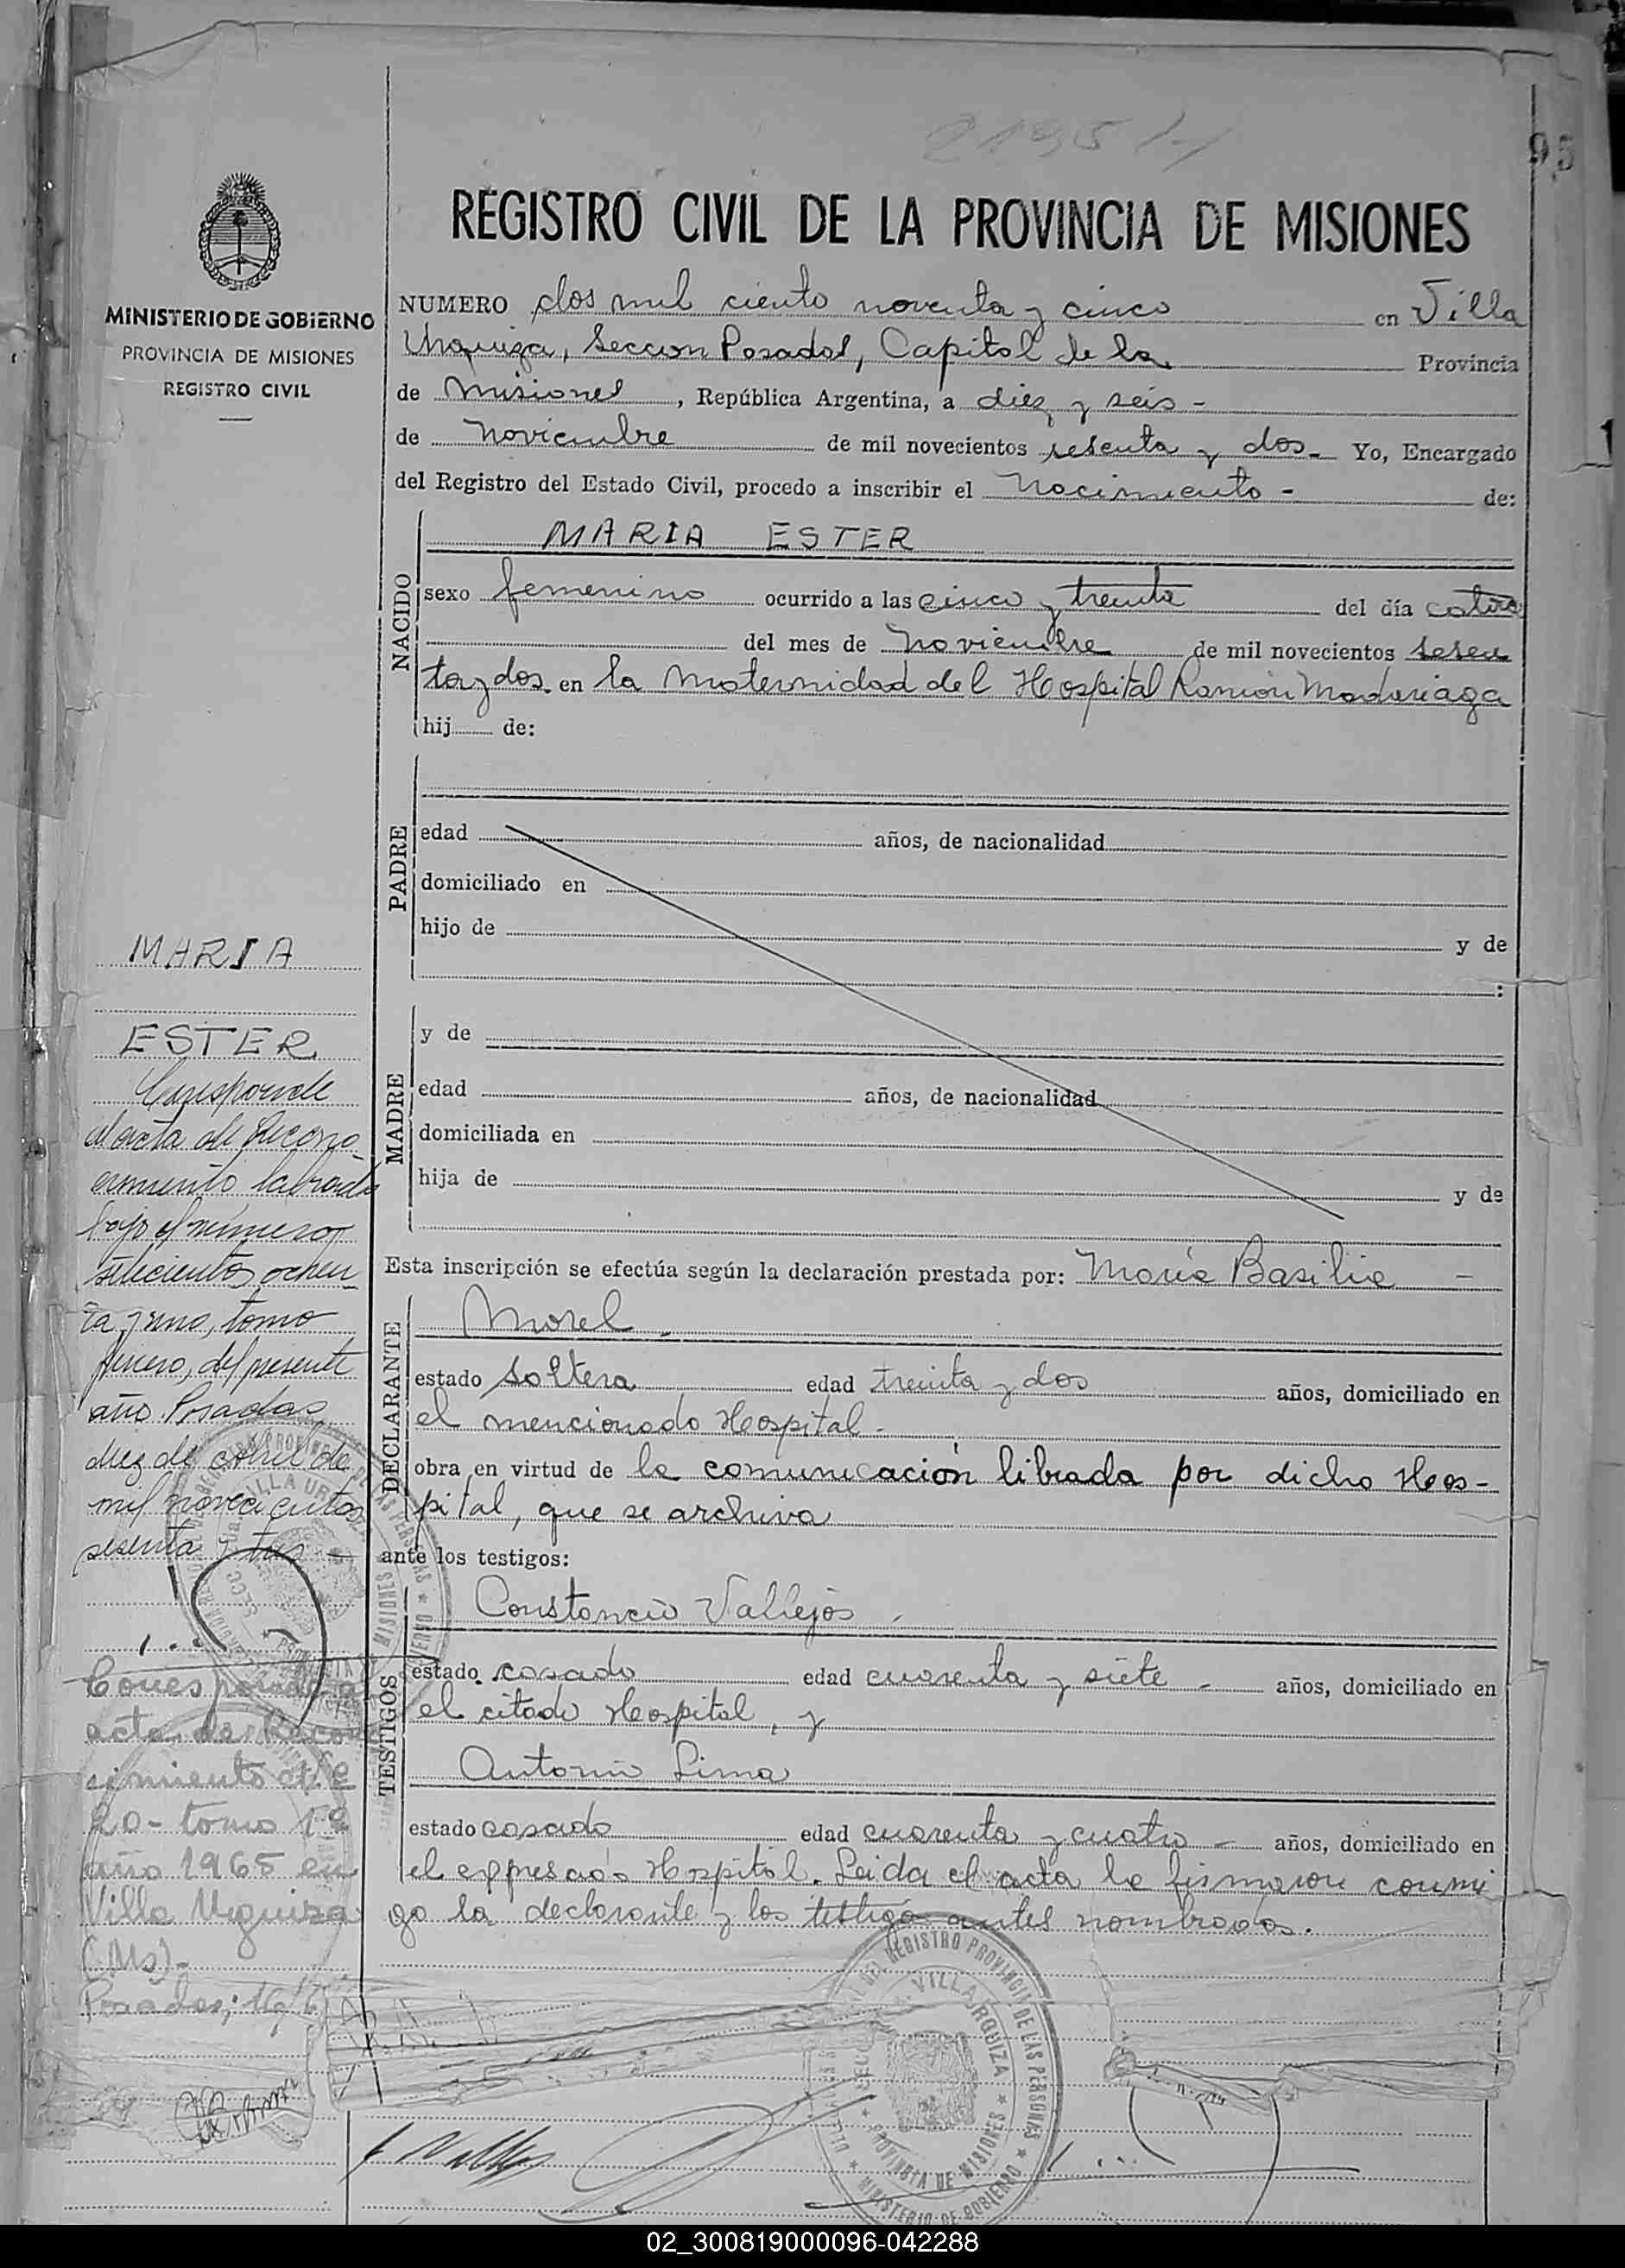 21951
95
REGISTRO CIVIL DE LA PROVINCIA DE MISIONES
MINISTERIO DE GOBIERNO
PROVINCIA DE MISIONES
REGISTRO CIVIL
NUMERO dos mil ciento noventa y cinco en Villa
Urquiza, Seccion Posadas, Capital de la Provincia
de Misiones, República Argentina, a diez y seis -
de noviembre de mil novecientos sesenta y dos - Yo, Encargado
del Registro del Estado Civil, procedo a inscribir el Nacimiento - de:
MARIA ESTER
NACIDO
sexo femenino ocurrido a las cinco y treinta del día catorce
del mes de Noviembre de mil novecientos sesen
ta y dos en la Maternidad del Hospital Ramón Madariaga
hij de:
PADRE
edad años, de nacionalidad
domiciliado en
hijo de y de
:
MADRE
y de
edad años, de nacionalidad
domiciliada en
hija de y de
Esta inscripción se efectúa según la declaración prestada por: María Basilia -
DECLARANTE
Morel.
estado soltera edad treinta y dos años, domiciliado en
el mencionado Hospital -
obra en virtud de la comunicación librada por dicho Hos-
pital, que se archiva
ante los testigos:
TESTIGOS
Constancio Vallejos
estado casado edad cuarenta y siete - años, domiciliado en
el citado Hospital, y
Antonio Lima
estado casado edad cuarenta y cuatro - años, domiciliado en
el expresado Hospital. Leida el acta la firmaron conmi
go la declarante y los testigos antes nombrados.
MARIA
ESTER
Corresponde
al acta de Recono
cimiento labrada
bajo el número
setecientos ochen
ta y uno, tomo
primero, del presente
año. Posadas
diez de abril de
mil novecientos
sesenta y tres -
Corresponde a
acta de Recono
cimiento
20 - tomo 1º
año 1965 en
Villa Urquiza
(Ms) -
Posadas,
DEL REGISTRO PROVINCIAL DE LAS PERSONAS
VILLA URQUIZA
PROVINCIA DE MISIONES
MINISTERIO DE GOBIERNO
02_300819000096-042288